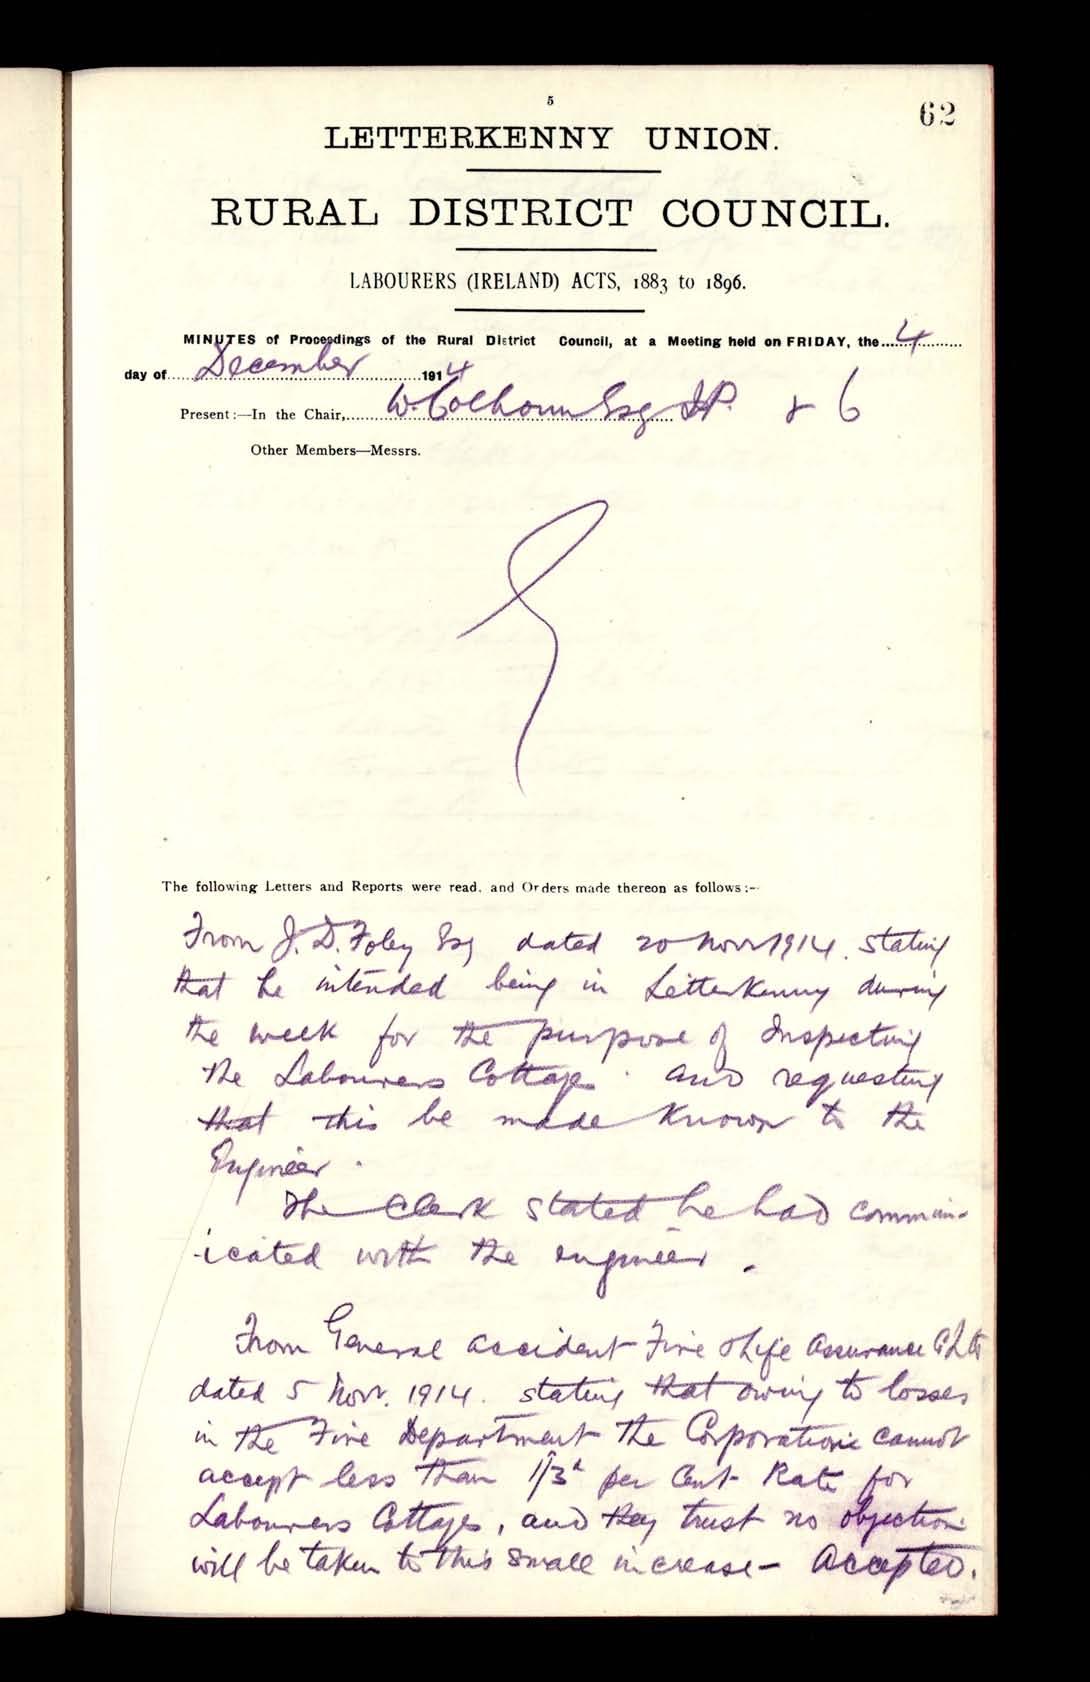 5
62
LETTERKENNY UNION.
RURAL DISTRICT COUNCIL.
LABOURERS (IRELAND) ACTS, 1883 to 1896.
MINUTES of Proceedings of the Rural District Council, at a Meeting held on FRIDAY, the 4
day of December 1914
Present:—In the Chair, W. Colhoun Esq J.P. & 6
Other Members—Messrs.
The following Letters and Reports were read, and Orders made thereon as follows:—
From J. D. Foley Esq dated 20 Novr 1914. stating
that he intended being in Letterkenny during
the week for the purpose of Inspecting
the Labourers Cottages. and requesting
that this be made known to the
Engineer.
The Clerk stated he had commun-
icated with the engineer.
From General accident Fire & Life Assurance C. Ltd
dated 5 Novr. 1914. stating that owing to losses
in the Fire Department the Corporation cannot
accept less than 1/3d per Cent Rate for
Labourers Cottages, and they trust no objection
will be taken to this small increase — Accepted.